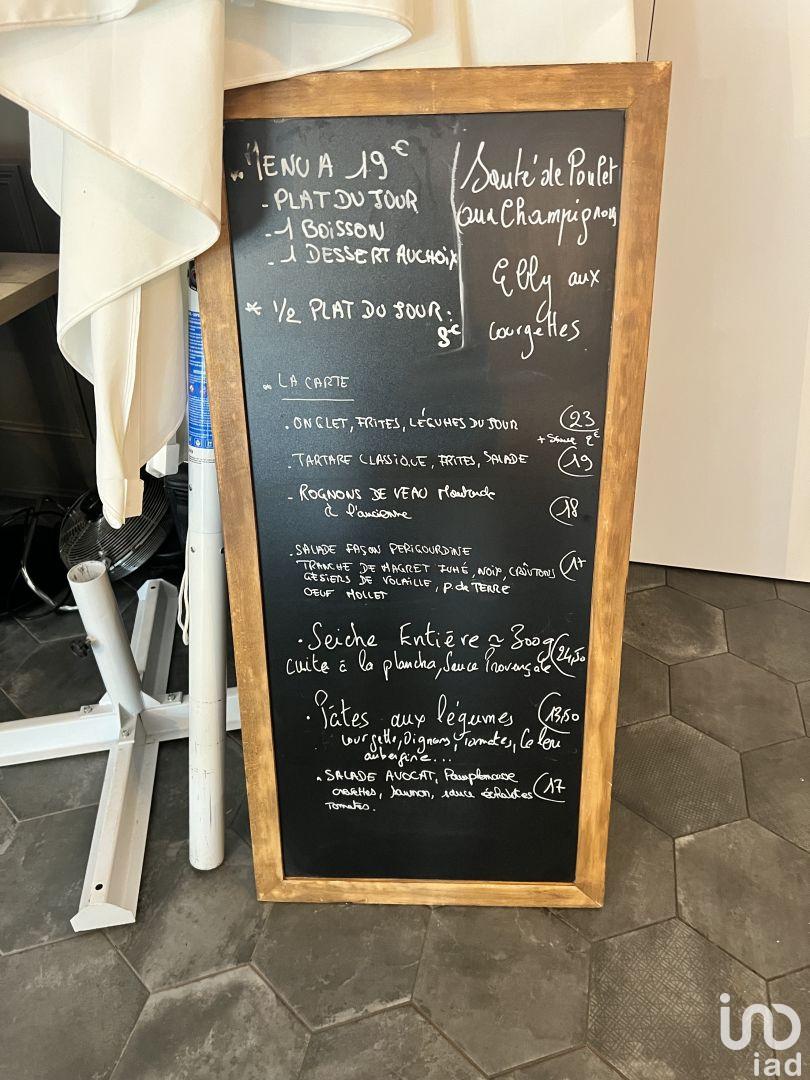 MENU A 19€
- PLAT DU JOUR
- 1 BOISSON
- 1 DESSERT AU CHOIX
* 1/2 PLAT DU JOUR :
8€
Sauté de Poulet
aux Champignons
Ebly aux
courgettes
LA CARTE
. ONGLET, FRITES, LÉGUMES DU JOUR 23
+ Sauce 2€
. TARTARE CLASSIQUE, FRITES, SALADE 19
- ROGNONS DE VEAU Moutarde
à l'ancienne 18
. SALADE FAÇON PERIGOURDINE 17
TRANCHE DE MAGRET FUMÉ, NOIX, CROÛTONS
GESIERS DE VOLAILLE, P. de TERRE
OEUF MOLLET
. Seiche Entiére ≃ 300g 24,50
cuite à la plancha, Sauce Provençale
. Pâtes aux légumes 13,50
courgette, Oignons, Tomates,
aubergine...
. SALADE AVOCAT, Pamplemousse
crevettes, saumon, sauce échalotes 17
Tomates.
iad